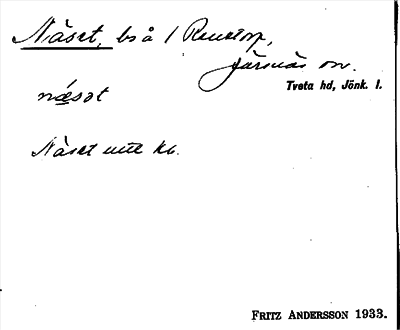 Näset, bs å 1 Renstorp,
Järsnäs sn.
Tveta hd, Jönk. l.
næsət
Näset utte kb.
FRITZ ANDERSSON 1933.